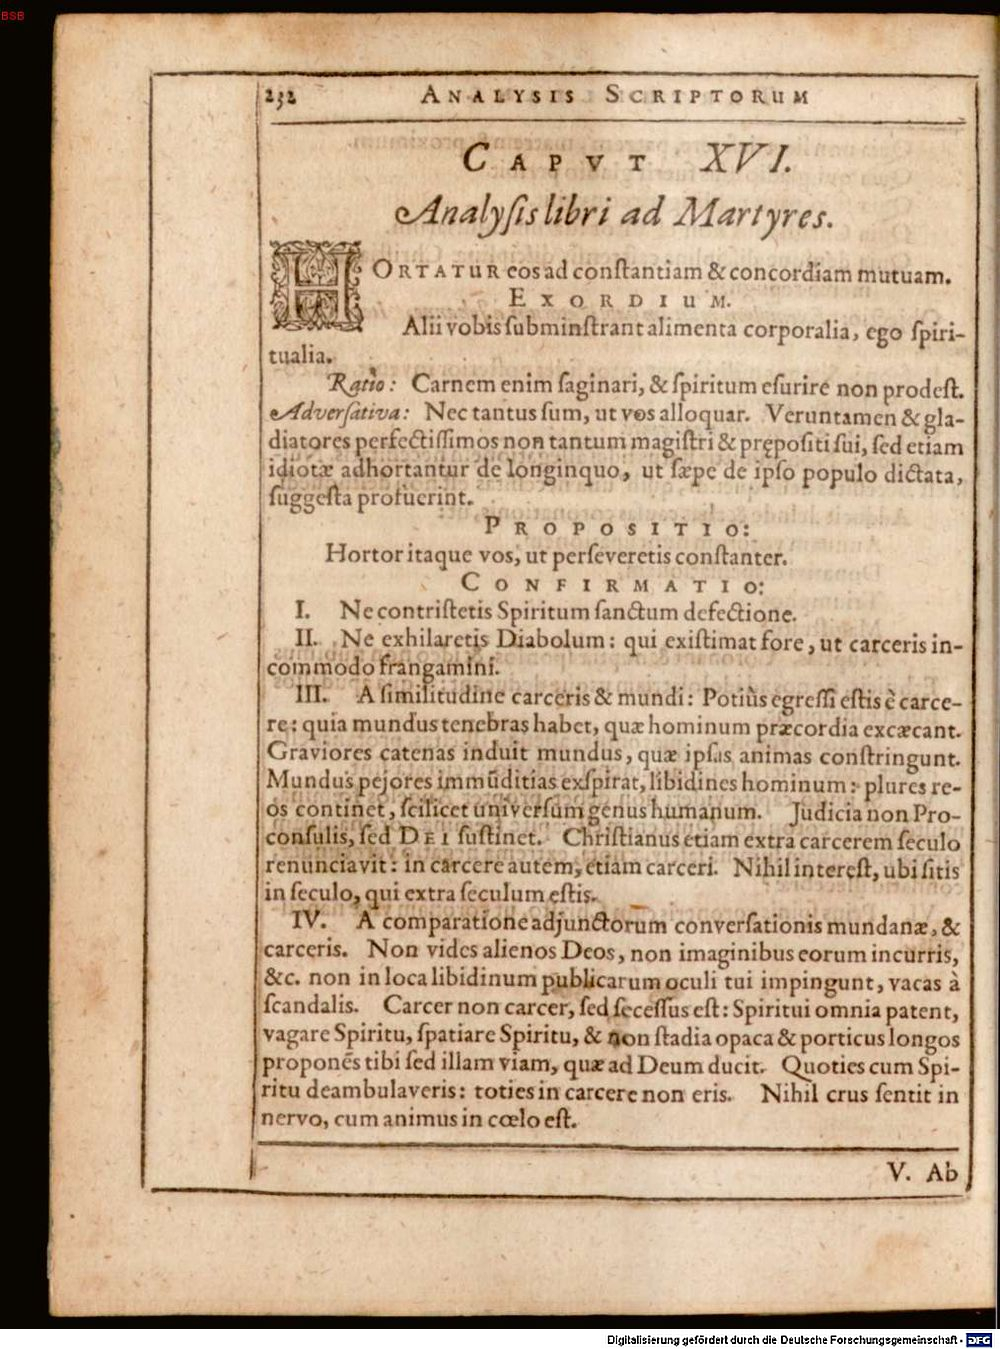 BSB
232 ANALYSIS SCRIPTORUM
CAPVT XVI.
Analysis libri ad Martyres.
HORTATUR eos ad constantiam & concordiam mutuam.
EXORDIUM.
Alii vobis subminstrant alimenta corporalia, ego spiri-
tualia.
Ratio: Carnem enim saginari, & spiritum esurire non prodest.
Adversativa: Nec tantus sum, ut vos alloquar. Veruntamen & gla-
diatores perfectissimos non tantum magistri & prępositi sui, sed etiam
idiotæ adhortantur de longinquo, ut sæpe de ipso populo dictata,
suggesta profuerint.
PROPOSITIO:
Hortor itaque vos, ut perseveretis constanter.
CONFIRMATIO:
I. Ne contristetis Spiritum sanctum defectione.
II. Ne exhilaretis Diabolum: qui existimat fore, ut carceris in-
commodo frangamini.
III. A similitudine carceris & mundi: Potiùs egressi estis è carce-
re: quia mundus tenebras habet, quæ hominum præcordia excæcant.
Graviores catenas induit mundus, quæ ipsas animas constringunt.
Mundus pejores immūditias exspirat, libidines hominum: plures re-
os continet, scilicet universum genus humanum. Judicia non Pro-
consulis, sed DEI sustinet. Christianus etiam extra carcerem seculo
renunciavit: in carcere autem, etiam carceri. Nihil interest, ubi sitis
in seculo, qui extra seculum estis.
IV. A comparatione adjunctorum conversationis mundanæ, &
carceris. Non vides alienos Deos, non imaginibus eorum incurris,
&c. non in loca libidinum publicarum oculi tui impingunt, vacas à
scandalis. Carcer non carcer, sed secessus est: Spiritui omnia patent,
vagare Spiritu, spatiare Spiritu, & non stadia opaca & porticus longos
proponēs tibi sed illam viam, quæ ad Deum ducit. Quoties cum Spi-
ritu deambulaveris: toties in carcere non eris. Nihil crus sentit in
nervo, cum animus in cœlo est.
V. Ab
Digitalisierung gefördert durch die Deutsche Forschungsgemeinschaft - DFG